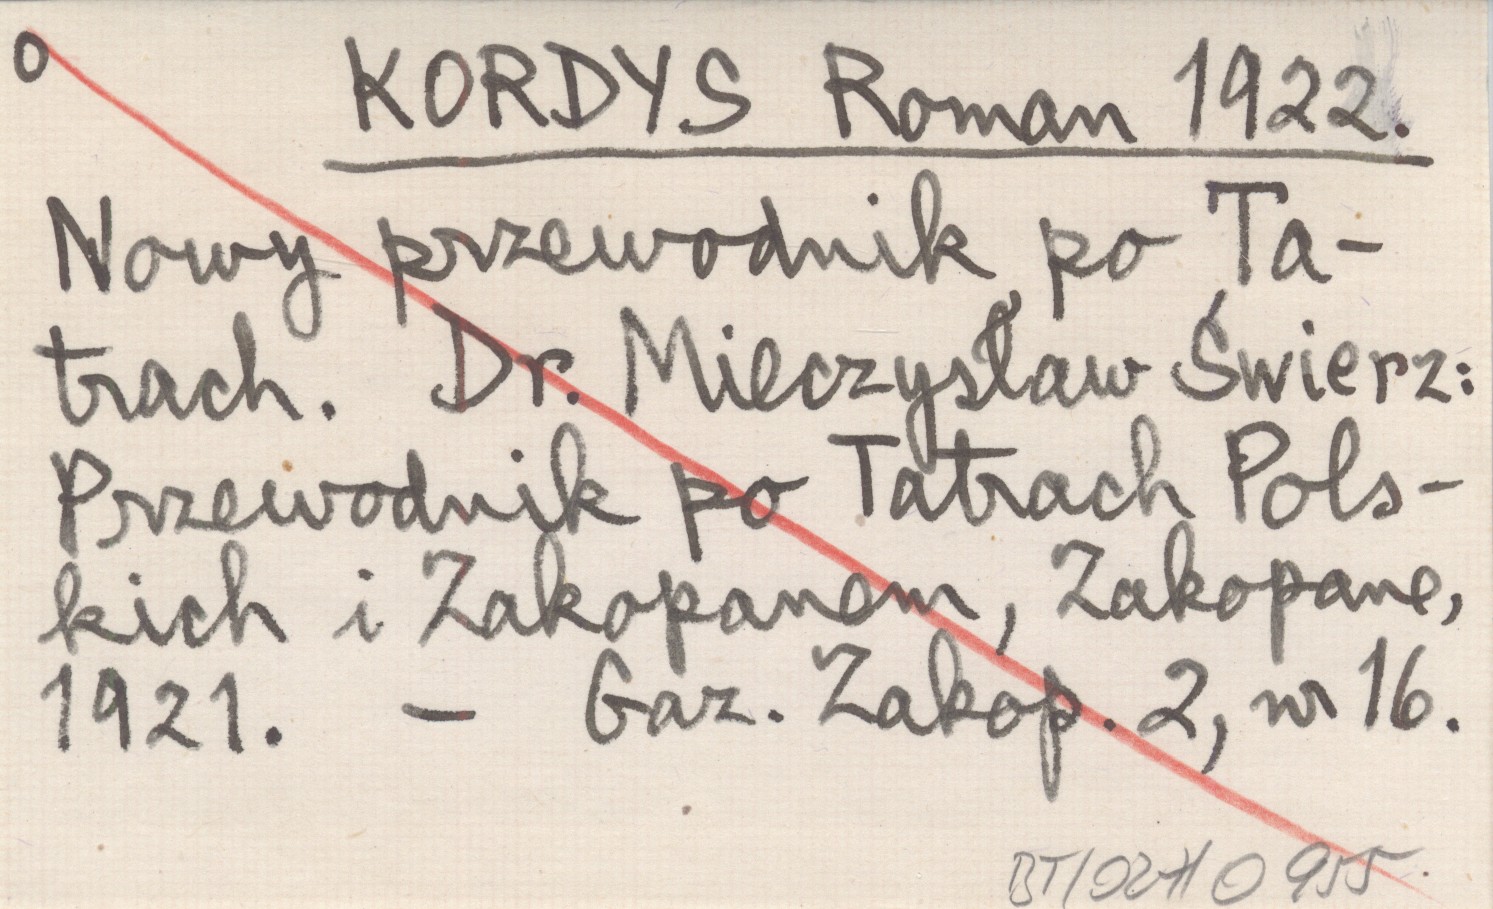 o KORDYS Roman 1922.
Nowy przewodnik po Ta-
trach. Dr. Mieczysław Świerz:
Przewodnik po Tatrach Pols-
kich i Zakopanem, Zakopane,
1921. – Gaz. Zakop. 2, nr 16.
955